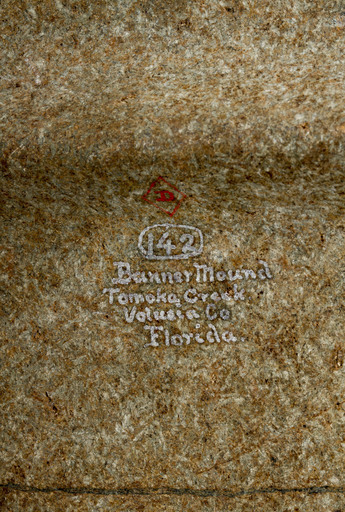 142
Bunner Mound
Tomoka Creek
Volusia Co
Florida.